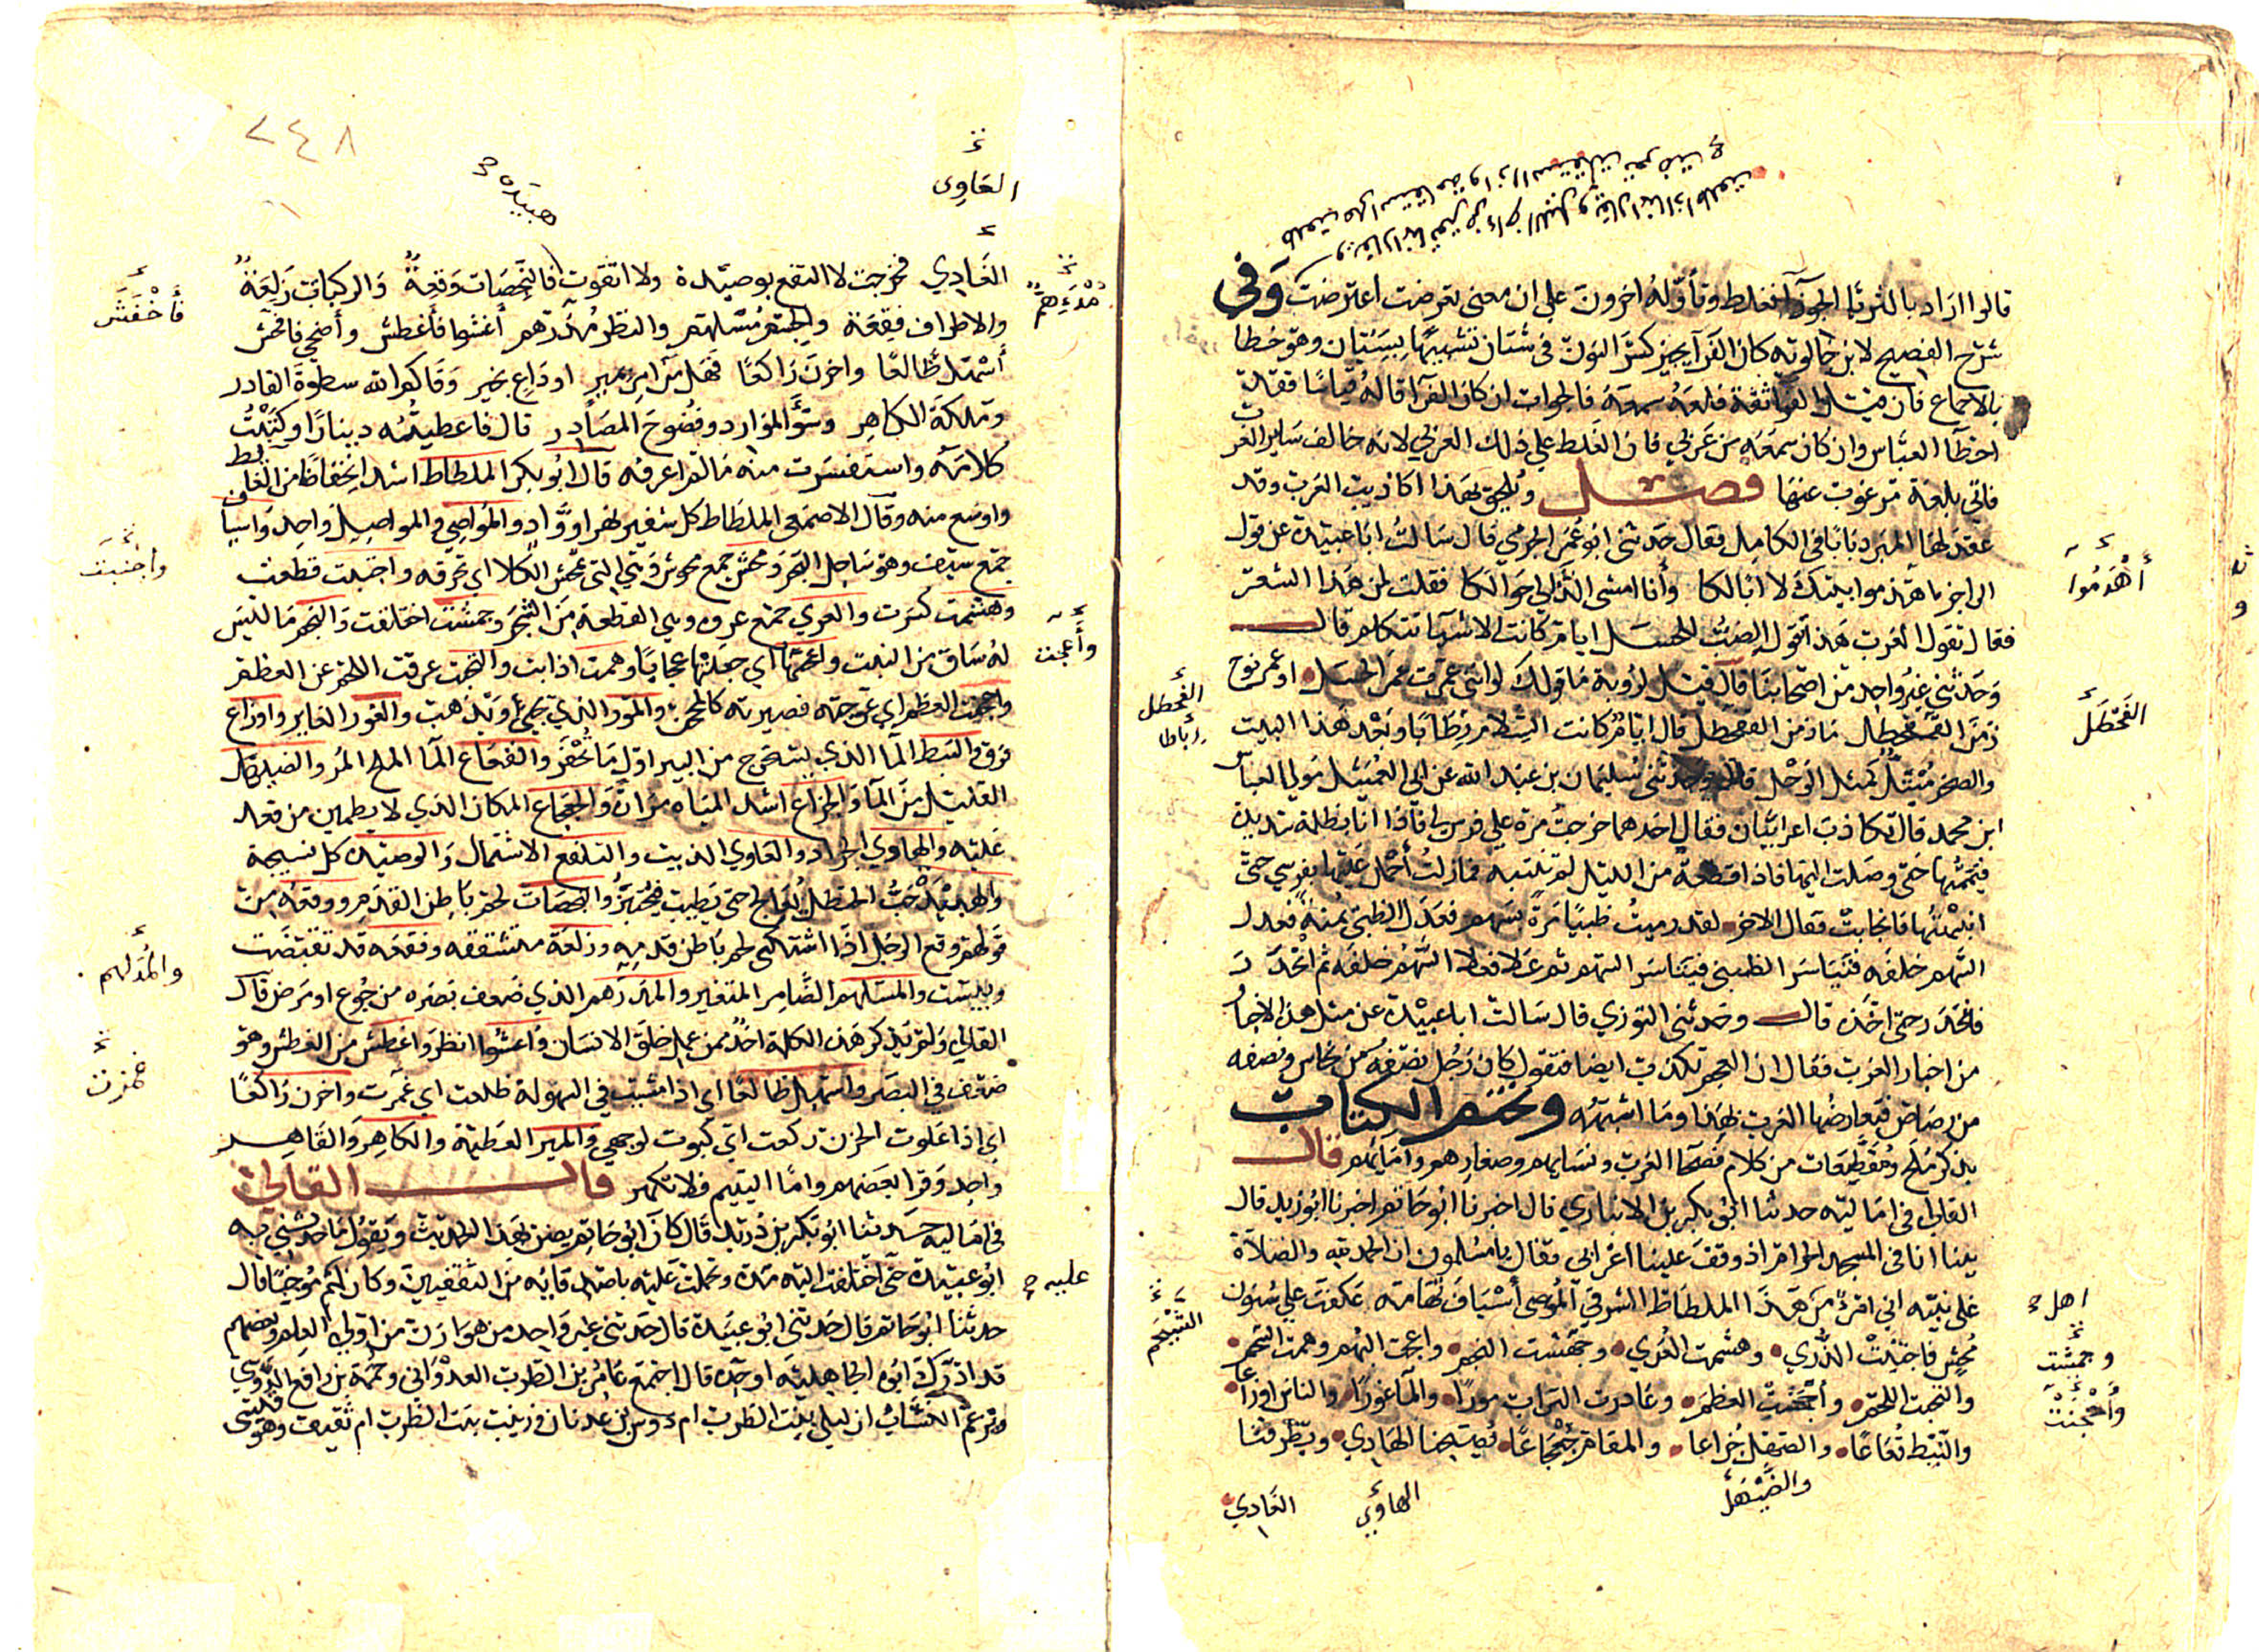 قالوا اراد بالثريا الجوزآ فغلط وتأوله اخرون علي ان معنى تعرضت اعترضت وفى
شرح الفصيح لابن خالويه كان الفرآ يجيز كسر النون فى شتان تشبيهًا بسيّان وهو خطا
بالاجماع فان قيل الفرا ثقة فلعله سمعه فالجواب ان كان الفرآ قاله قياسا فقد
اخطأ القياس وان كان سمعه من عربي فان الغلط علي ذلك العربي لانه خالف ساير العرب
فاتى بلغة مرغوب عنها فصل ويلحق بهذا اكاذيب العرب وقد
عقد لها المبرد بابا فى الكامل فقال حدثنى ابو عمر الجرمي قال سالت ابا عبيدة عن قول
الراجز اهدموا بيتك لا ابا لكا وأنا امشى الدألى حوالكا فقلت لمن هذا الشعر
فقال تقول العرب هذا يقول الضب للحسل ايام كانت الاشيآ تتكلم قال
وحدثنى غير واحد من اصحابنا قال قيل لرؤبة ما قولك لو اننى عمرت عمر الحسل او عمر نوح
زمن الفطحل ما زمن الفطحل قال ايام كانت السلام رطابا وبعد هذا البيت
والصخر مبتل كمثل الوحل قال وحدثنى سليمان بن عبد الله عن ابي العميثل مولي العباس
ابن محمد قال تكاذب اعرابيان فقال احدهما خرجت مرة علي فرس لي فاذا انا بظلمة شديدة
فيممتها حتى وصلت اليها فاذا قطعة من الليل لم تنتبه فمازلت أحمل عليها بفرسي حتى
انبهتها فانجابت فقال الاخر لقد رميت ظبيا مرة بسهم فعدل الظبى يمنة فعدل
السهم خلفه فتياسر الظبى فتياسر السهم ثم علا فعلا السهم خلفه ثم انحدر
فانحدر حتى اخذه قال وحدثنى التوزي قال سالت ابا عبيدة عن مثل هذه الاخبار
من اخبار العرب فقال ان العجم تكذب ايضا فتقول كان رجل نصفه من نحاس ونصفه
من رصاص فتعارضها العرب بهذا وما اشبهه ونختم الكتاب
بذكر ملح ومقطعات من كلام فصحآ العرب ونسايهم وصغارهم وامايهم قال
القالى فى اماليه حدثنا ابو بكر بن الانباري قال اخبرنا ابو حاتم اخبرنا ابو زيد قال
بينا انا فى المسجد الحرام اذ وقف علينا اعرابى فقال يا مسلمون ان الحمد لله والصلاة
على نبيه اني امرؤ من هذا الملطاط الشرقي المُوصى أسياف تهامة عكفت علي سنون
مُحش فاجتبت الذرى وهشمت العُرى وجمشت النجم واعجت البهم وهمت الشحم
والتحبت اللحم وأحجنت العظم وغادرت التراب مورًا والمآ غورًا والناس اوزاعا
والنبط قُعاعًا والضهل جُزاعا والمقام جعجاعًا يصبحنا الهادي ويطرقنا
والضَيْهَل
الهاوي
العَادي
أُهْدَمُوا
الفَطْحَل
الفِطحل
اهل
وجمشت
وأحْجَنت
العَاوِى
٢٤٨
العَادِي فخرجت لا اتلفع بوصيدة ولا اتقوت فالبَخَصَات وَقِعةٌ والركبات زَلِعَةٌ
والاطراف فقعة والجسم مسلهم والنظر مُدرهم أعشوا فأغطش وأضحي فاخفش
أسهل ظالعًا واحزن راكعًا فهل من امر بمير او داع بخير وقاكم الله سطوة القادر
وملكة الكاهر وسوّء الموارد وفضوح المصادر قال فاعطيته دينارًا وكتبت
كلامه واستفسرت منه ما لم اعرفه قال ابو بكر الملطاط اشد انخفاضًا من الغايط
واوسع منه وقال الاصمعى الملطاط كل شفير نهر او وادٍ والمواصي والمواصل واحد واسياف
جمع سيف وهو ساحل البحر ومحش جمع محوش وهي التى تمحش الكلا اي تحرقه واجتبت قطعت
وهشمت كسرت والعرى جمع عروة وهي القطعة من الشجر وجمشت احتلقت والنجم ما ليس
له ساق من النبات واعجتها اي جعلتها عجايا وهمت اذابت والتحت عرقت اللحم عن العظم
واحجنت العظم اي عوجته فصيرته كالمحجن والمور الذي يجيء ويذهب والغور الغاير واوزاع
فرق والنبط المآ الذي يستخرج من البير اول ما تحفر والقعاع المآ الملح المر والضهل
القليل من المآ والجزاع اشد المياه مرارة والجعجاع المكان الذي لا يطمين من قعد
عليه والهاوي الجراد والعاوي الذيب والتلفع الاشتمال والوصيدة كل نسيجة
والهبيد حب الحنظل يعالج حتى يطيب فيختبز والبخصات لحم باطن القدم ووقعة من
قولهم وقع الرجل اذا اشتكى لحم باطن قدمه وزلعة متشققه وفقعه قد تقبضت
ويبست والمسلهم الضامر المتغير والمدرهم الذي ضعف بصره من جوع او مرض قال
القالي ولم يذكر هذه الكلمة احد ممن عمل خلق الانسان واعشوا انظر واغطش من الغطش وهو
ضعف فى البصر واسهل ظالعًا اي اذا مشيت فى السهولة ظلعت اي غمزت واحزن راكعًا
اي اذا علوت الحزن ركعت اي كبوت لوجهي والمير العطية والكاهر والقاهر
واحد وقرا بعضهم وامّا اليتيم فلا تكهر قال القالي
فى اماليه حدثنا ابو بكر بن دريد قال كان ابو حاتم يضن بهذا الحديث ويقول ما حدثني به
ابو عبيدة حتى اختلفت اليه مدة وتحملت عليه باصدقايه من الثقفيين وكان لهم مؤاخيًا قال
حدثنا ابو حاتم قال حدثنى ابو عبيدة قال حدثنى غير واحد من هوازن من اولي العلم وبعضهم
قد ادرك ابوه الجاهلية او جده قال اجتمع عامر بن الظرب العدوانى وحممة بن رافع الدوسي
ويزعم النساب ان ليلى بنت الظرب ام دوس بن عدنان وزينب بنت الظرب ام ثقيف وهو قسى
فأخفش
والمُدلهم
غمزت
عليه